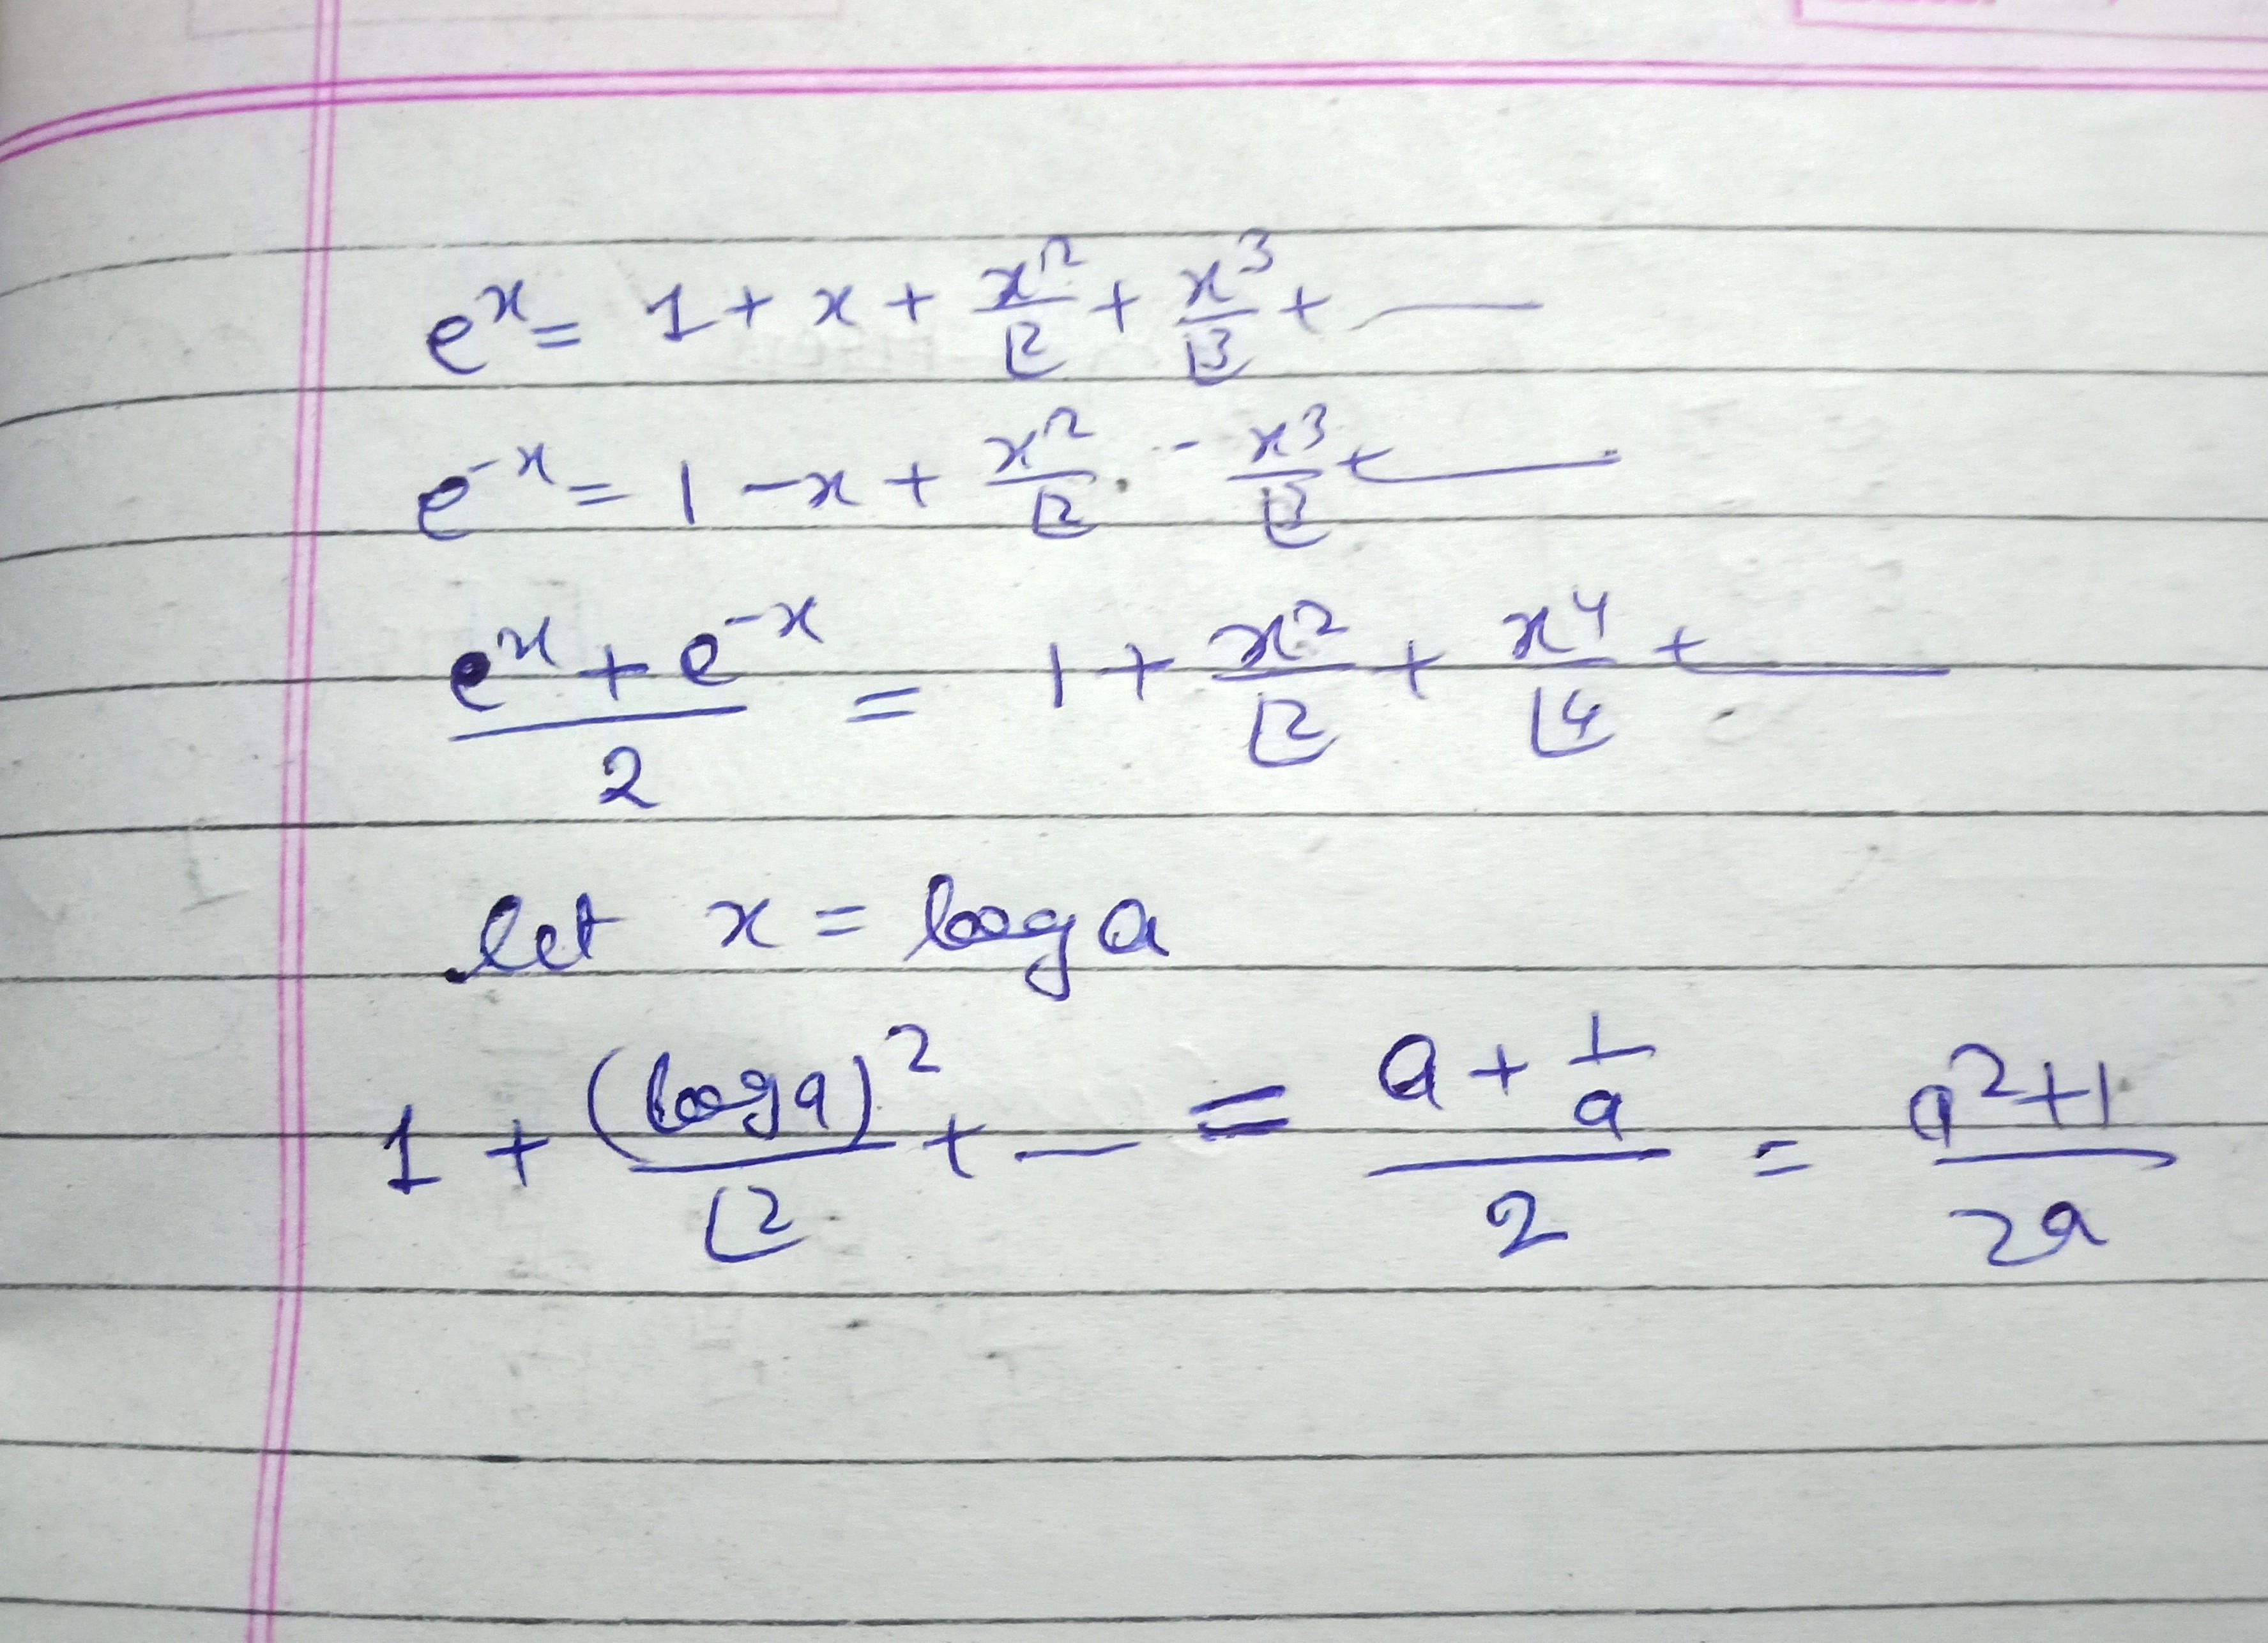 e^x = 1 + x + x^2/⌊2 + x^3/⌊3 + —
e^-x = 1 - x + x^2/⌊2 - x^3/⌊3 + —
(e^x + e^-x)/2 = 1 + x^2/⌊2 + x^4/⌊4 + —
let x = log a
1 + (log a)^2/⌊2 + — = (a + 1/a)/2 = (a^2+1)/2a